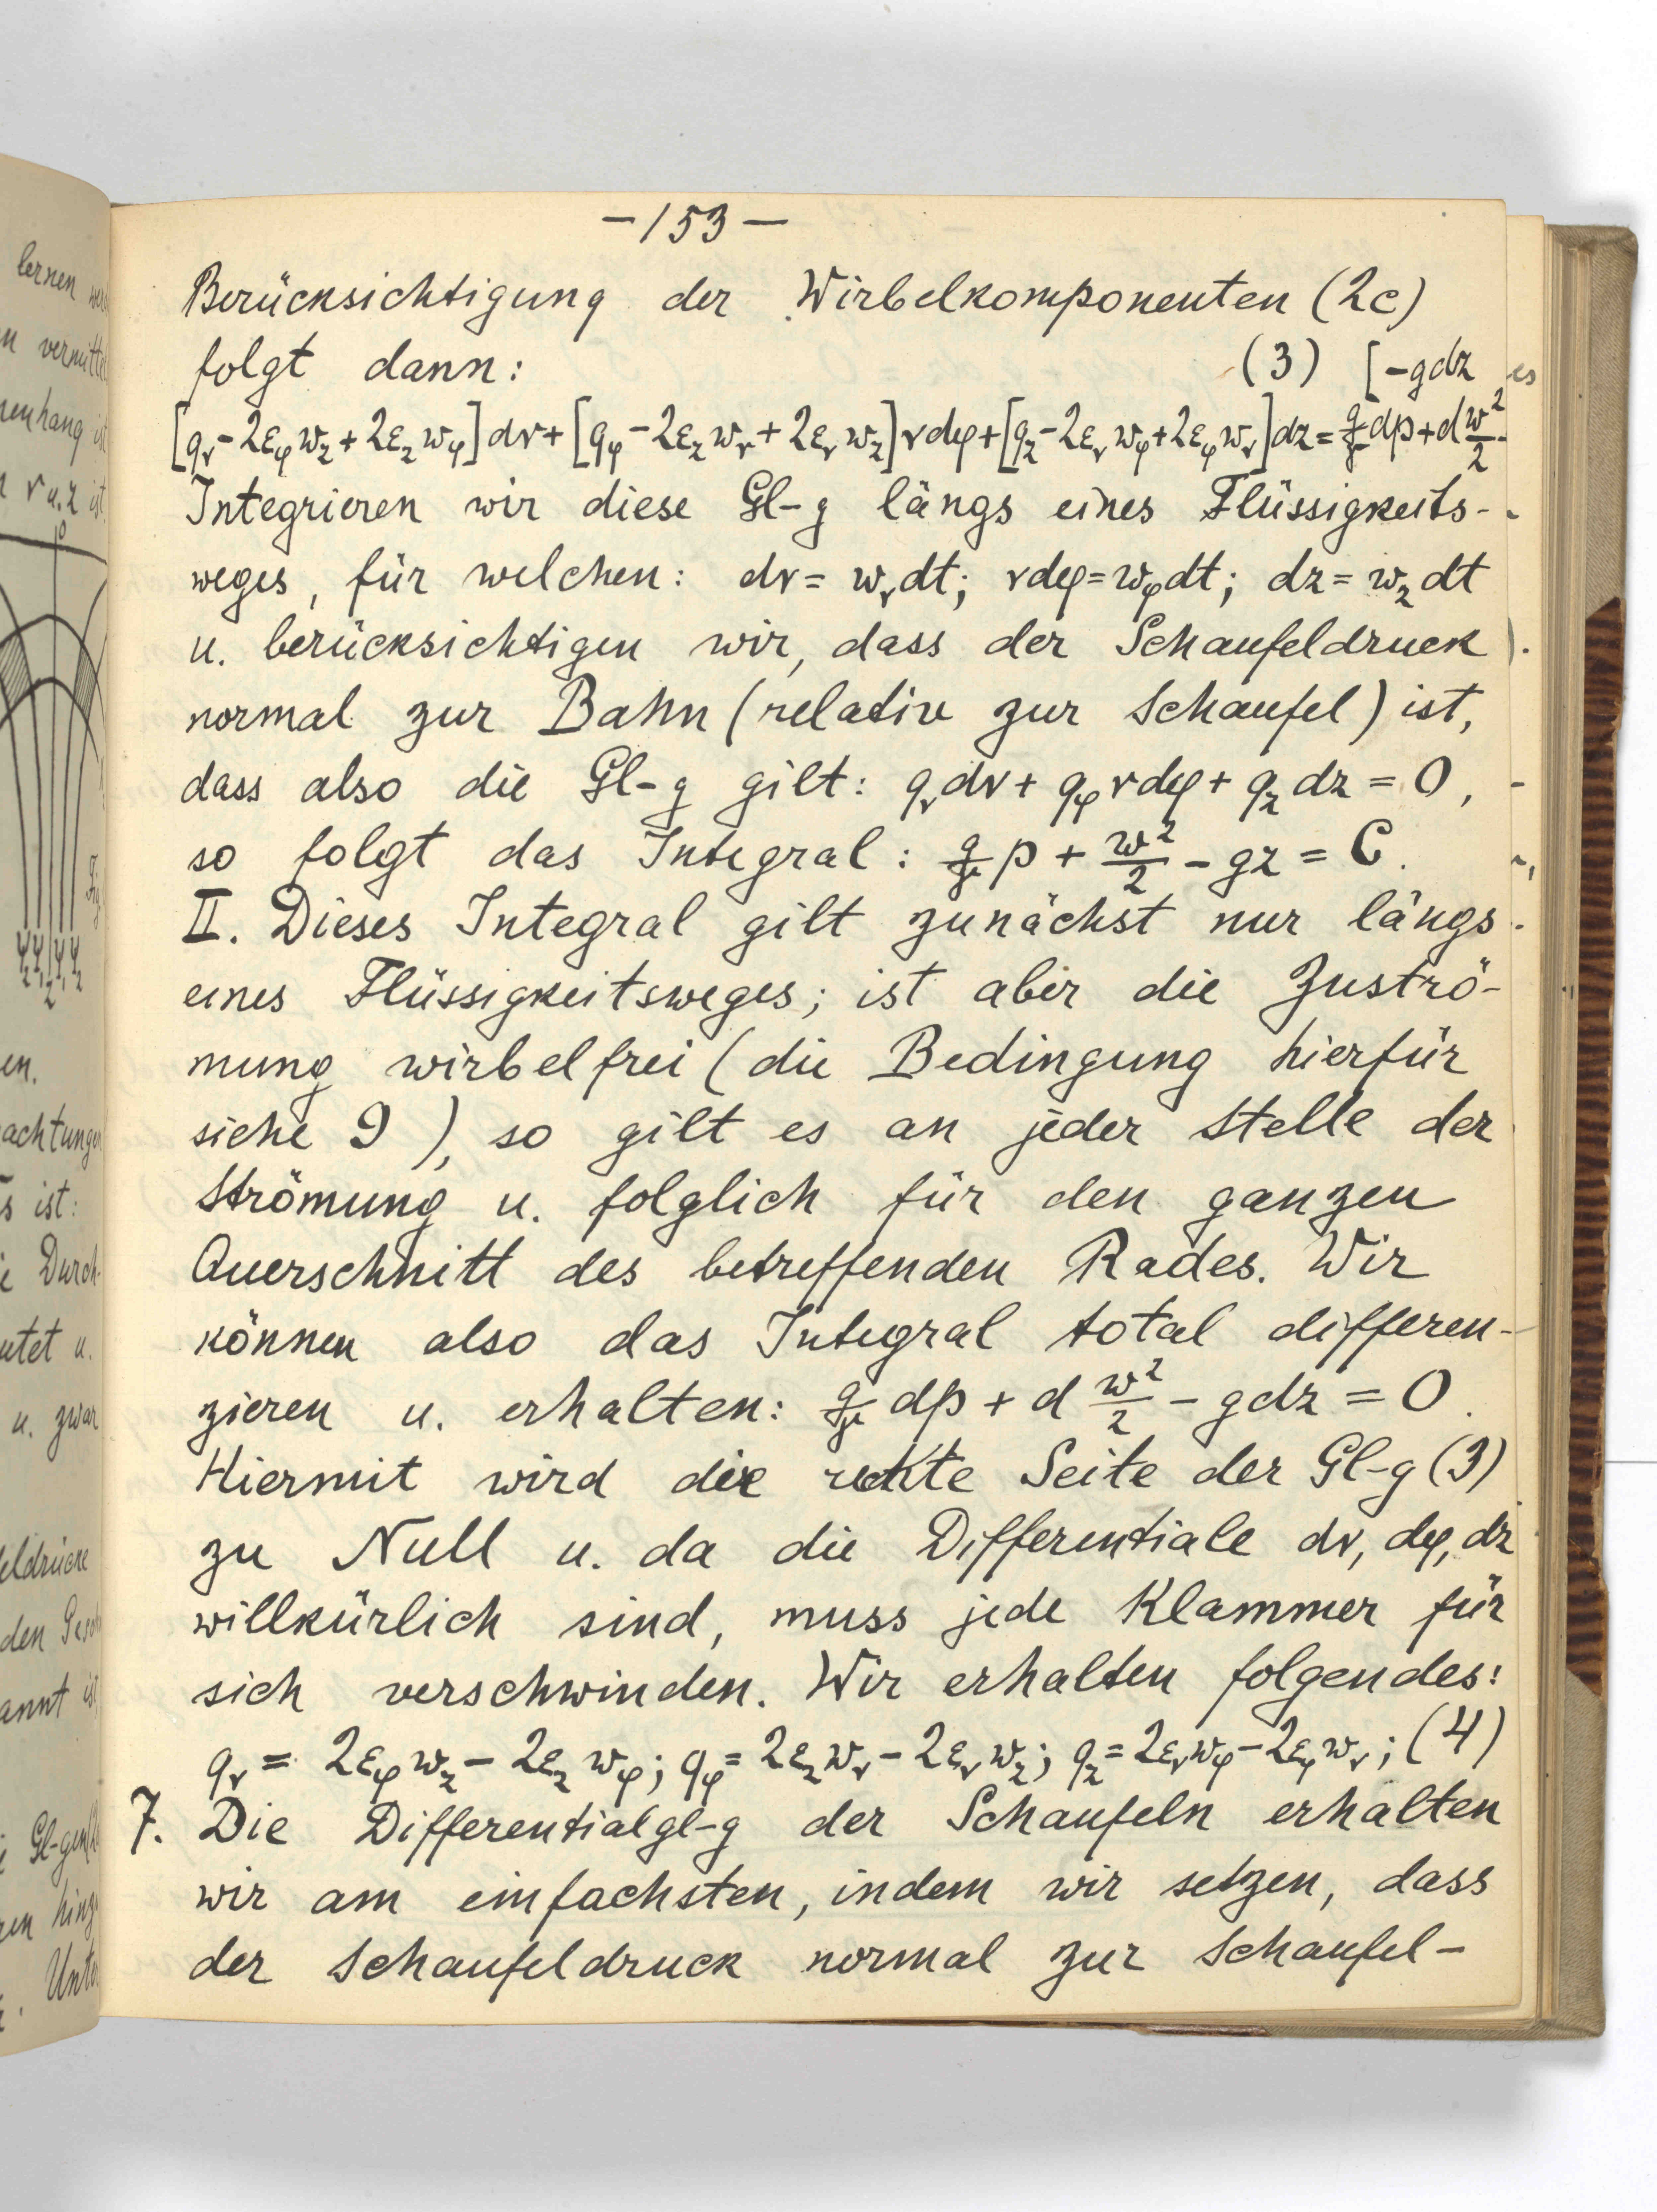 lernen
n vermitte
enhang
r u. z ist
en.
achtungen
s ist:
e Durch-
utet u.
u. zwar
eldrücke
den
annt ist
Gl-gen
en
. Unte
— 153 —
Berücksichtigung der Wirbelkomponenten (2c)
folgt dann: (3) [-gdz
[q_r - 2ε_φ w_z + 2ε_z w_φ] dr + [q_φ - 2ε_z w_r + 2ε_r w_z] r dφ + [q_z - 2ε_r w_φ + 2ε_φ w_r] dz = g/γ dp + d w²/2 -
Integrieren wir diese Gl-g längs eines Flüssigkeits-
weges, für welchen: dr = w_r dt; r dφ = w_φ dt; dz = w_z dt
u. berücksichtigen wir, dass der Schaufeldruck
normal zur Bahn (relativ zur Schaufel) ist,
dass also die Gl-g gilt: q_r dr + q_φ r dφ + q_z dz = 0,
so folgt das Integral: g/γ p + w²/2 - gz = C.
II. Dieses Integral gilt zunächst nur längs
eines Flüssigkeitsweges; ist aber die Zuströ-
mung wirbelfrei (die Bedingung hierfür
siehe 9), so gilt es an jeder Stelle der
Strömung u. folglich für den ganzen
Querschnitt des betreffenden Rades. Wir
können also das Integral total differen-
zieren u. erhalten: g/γ dp + d w²/2 - gdz = 0.
Hiermit wird die rechte Seite der Gl-g (3)
zu Null u. da die Differentiale dr, dφ, dz
willkürlich sind, muss jede Klammer für
sich verschwinden. Wir erhalten folgendes:
q_r = 2ε_φ w_z - 2ε_z w_φ; q_φ = 2ε_z w_r - 2ε_r w_z; q_z = 2ε_r w_φ - 2ε_φ w_r; (4)
7. Die Differentialgl-g der Schaufeln erhalten
wir am einfachsten, indem wir setzen, dass
der Schaufeldruck normal zur Schaufel-